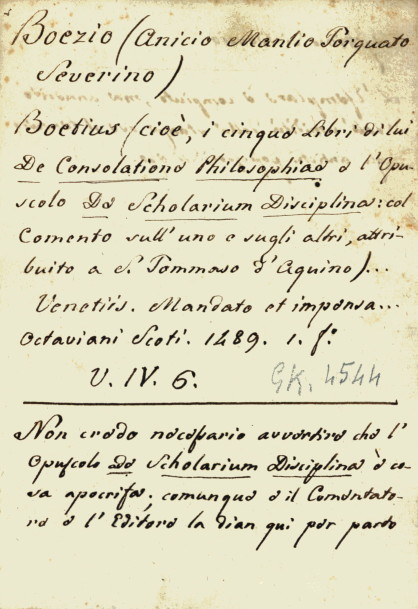 Boezio (Anicio Manlio Torquato
Severino)
Boetius (cioè, i cinque Libri di lui
De Consolatione Philosophiae e l'Opu-
scolo De Scholarium Disciplina: col
Comento sull'uno e sugli altri, attri-
buito a S. Tommaso d'Aquino)...
Venetiis. Mandato et impensa...
Octaviani Scoti. 1489. 1. fo.
V. IV. 6. GK. 4544
Non credo necessario avvertire che l'
Opuscolo De Scholarium Disciplina è co-
sa apocrifa; comunque e il Comentato-
re e l'Editore la dian qui per parto